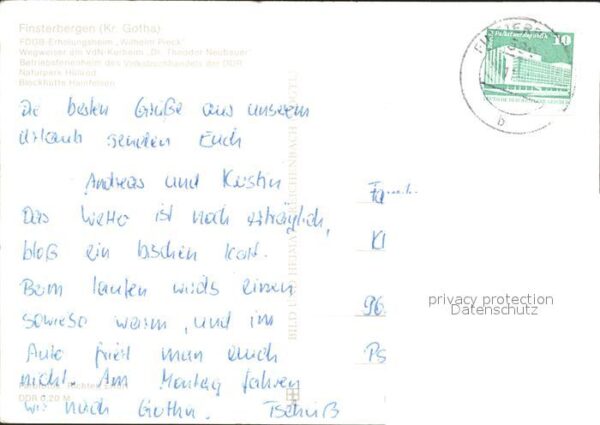 Finsterbergen (Kr. Gotha)
FDGB-Erholungsheim „Wilhelm Pieck"
Wegweiser am VdN-Kurheim „Dr. Theodor Neubauer"
Betriebsferienheim des Volksbuchhandels der DDR
Naturpark Hüllrod
Blockhütte Hainfelsen
Die besten Grüße aus unserem
Urlaub senden Euch
Andreas und Kerstin
Das Wetter ist noch erträglich,
bloß ein bischen kalt.
Beim laufen wirds einen
sowieso warm, und im
Auto friert man auch
nicht. Am Montag fahren
wir nach Gotha. Tschüß
DDR 0,20 M
BILD UND HEIMAT REICHENBACH
10
b
Fa
Kl
96
Ps
privacy protection
Datenschutz